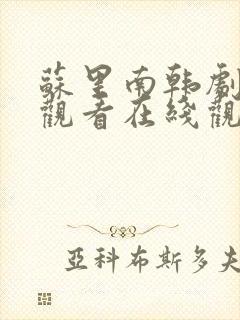 蘇里南韩劇
觀看在綫觀
亞科布斯多夫